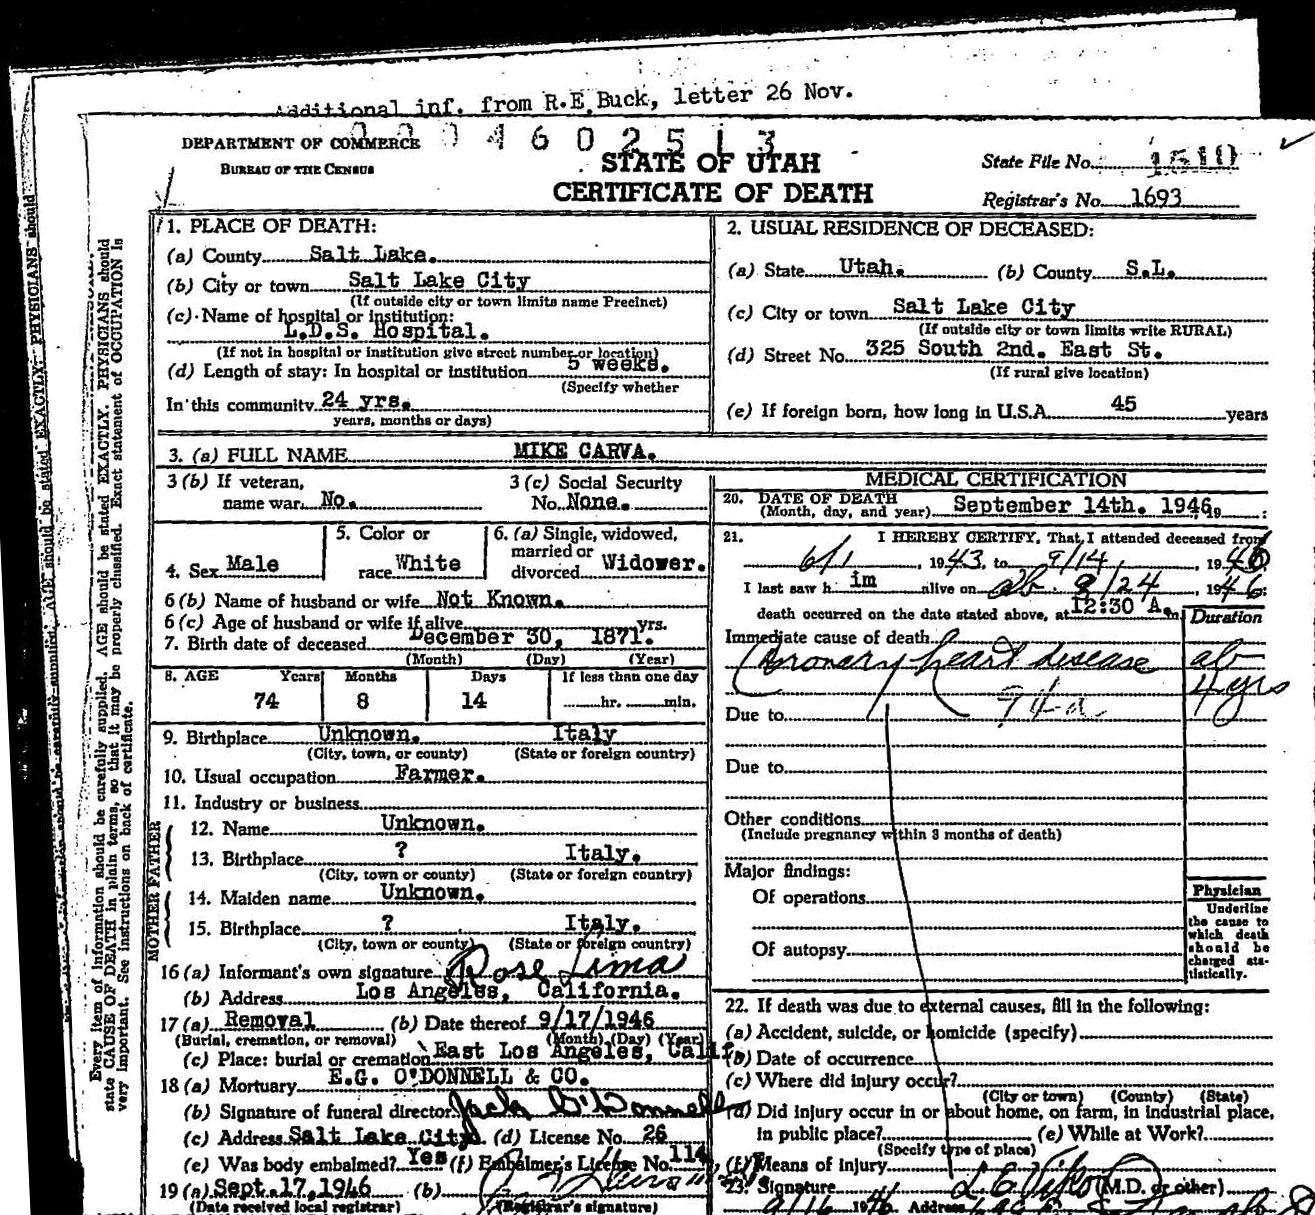 Additional inf. from R.E.Buck, letter 26 Nov.
DEPARTMENT OF COMMERCE
BUREAU OF THE CENSUS
4602513
STATE OF UTAH
CERTIFICATE OF DEATH
State File No. 1510
Registrar's No. 1693
1. PLACE OF DEATH:
(a) County Salt Lake.
(b) City or town Salt Lake City
(If outside city or town limits name Precinct)
(c) Name of hospital or institution:
L.D.S. Hospital.
(If not in hospital or institution give street number or location)
(d) Length of stay: In hospital or institution 5 weeks.
(Specify whether
In this community 24 yrs.
years, months or days)
2. USUAL RESIDENCE OF DECEASED:
(a) State Utah. (b) County S.L.
(c) City or town Salt Lake City
(If outside city or town limits write RURAL)
(d) Street No. 325 South 2nd. East St.
(If rural give location)
(e) If foreign born, how long in U.S.A. 45 years
3. (a) FULL NAME MIKE CARVA.
3 (b) If veteran,
name war. No.
3 (c) Social Security
No. None.
4. Sex Male
5. Color or
race White
6. (a) Single, widowed,
married or
divorced Widower.
6 (b) Name of husband or wife Not Known.
6 (c) Age of husband or wife if alive yrs.
7. Birth date of deceased December 30, 1871.
(Month) (Day) (Year)
8. AGE Years Months Days If less than one day
74 8 14 hr. min.
9. Birthplace Unknown. Italy
(City, town, or county) (State or foreign country)
10. Usual occupation Farmer.
11. Industry or business
FATHER
12. Name Unknown.
13. Birthplace ? Italy.
(City, town or county) (State or foreign country)
MOTHER
14. Maiden name Unknown.
15. Birthplace ? Italy.
(City, town or county) (State or foreign country)
16 (a) Informant's own signature Rose Lima
(b) Address Los Angeles, California.
17 (a) Removal (b) Date thereof 9/17/1946
(Burial, cremation, or removal) (Month) (Day) (Year)
(c) Place: burial or cremation East Los Angeles, Calif.
18 (a) Mortuary E.G. O'DONNELL & CO.
(b) Signature of funeral director Jack O'Donnell
(c) Address Salt Lake City. (d) License No. 26
(e) Was body embalmed? Yes (f) Embalmer's License No. 114
19 (a) Sept.17,1946 (b)
(Date received local registrar) (Registrar's signature)
MEDICAL CERTIFICATION
20. DATE OF DEATH
(Month, day, and year) September 14th. 1946
21. I HEREBY CERTIFY, That I attended deceased from
6/1, 1943, to 9/14, 1946
I last saw h im alive on ab. 8/24, 1946:
death occurred on the date stated above, at 12:30 A. m.
Duration
Immediate cause of death
Coronary heart disease ab
4 yrs
Due to 94a
Due to
Other conditions
(Include pregnancy within 3 months of death)
Major findings:
Of operations
Of autopsy
Physician
Underline
the cause to
which death
should be
charged sta-
tistically.
22. If death was due to external causes, fill in the following:
(a) Accident, suicide, or homicide (specify)
(b) Date of occurrence
(c) Where did injury occur?
(City or town) (County) (State)
(d) Did injury occur in or about home, on farm, in industrial place,
in public place? (e) While at Work?
(Specify type of place)
(f) Means of injury
23. Signature (M.D. or other)
9/16 1946 Address
Every items of information should be carefully supplied. AGE should be stated EXACTLY. PHYSICIANS should
state CAUSE OF DEATH in plain terms, so that it may be properly classified. Exact statement of OCCUPATION is
very important. See instructions on back of certificate.